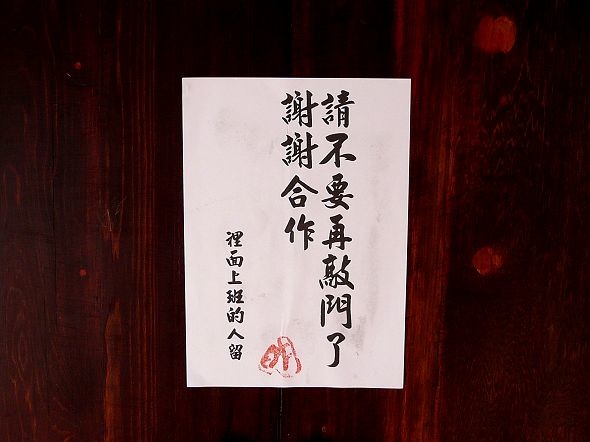 請不要再敲門了
謝謝合作
裡面上班的人留